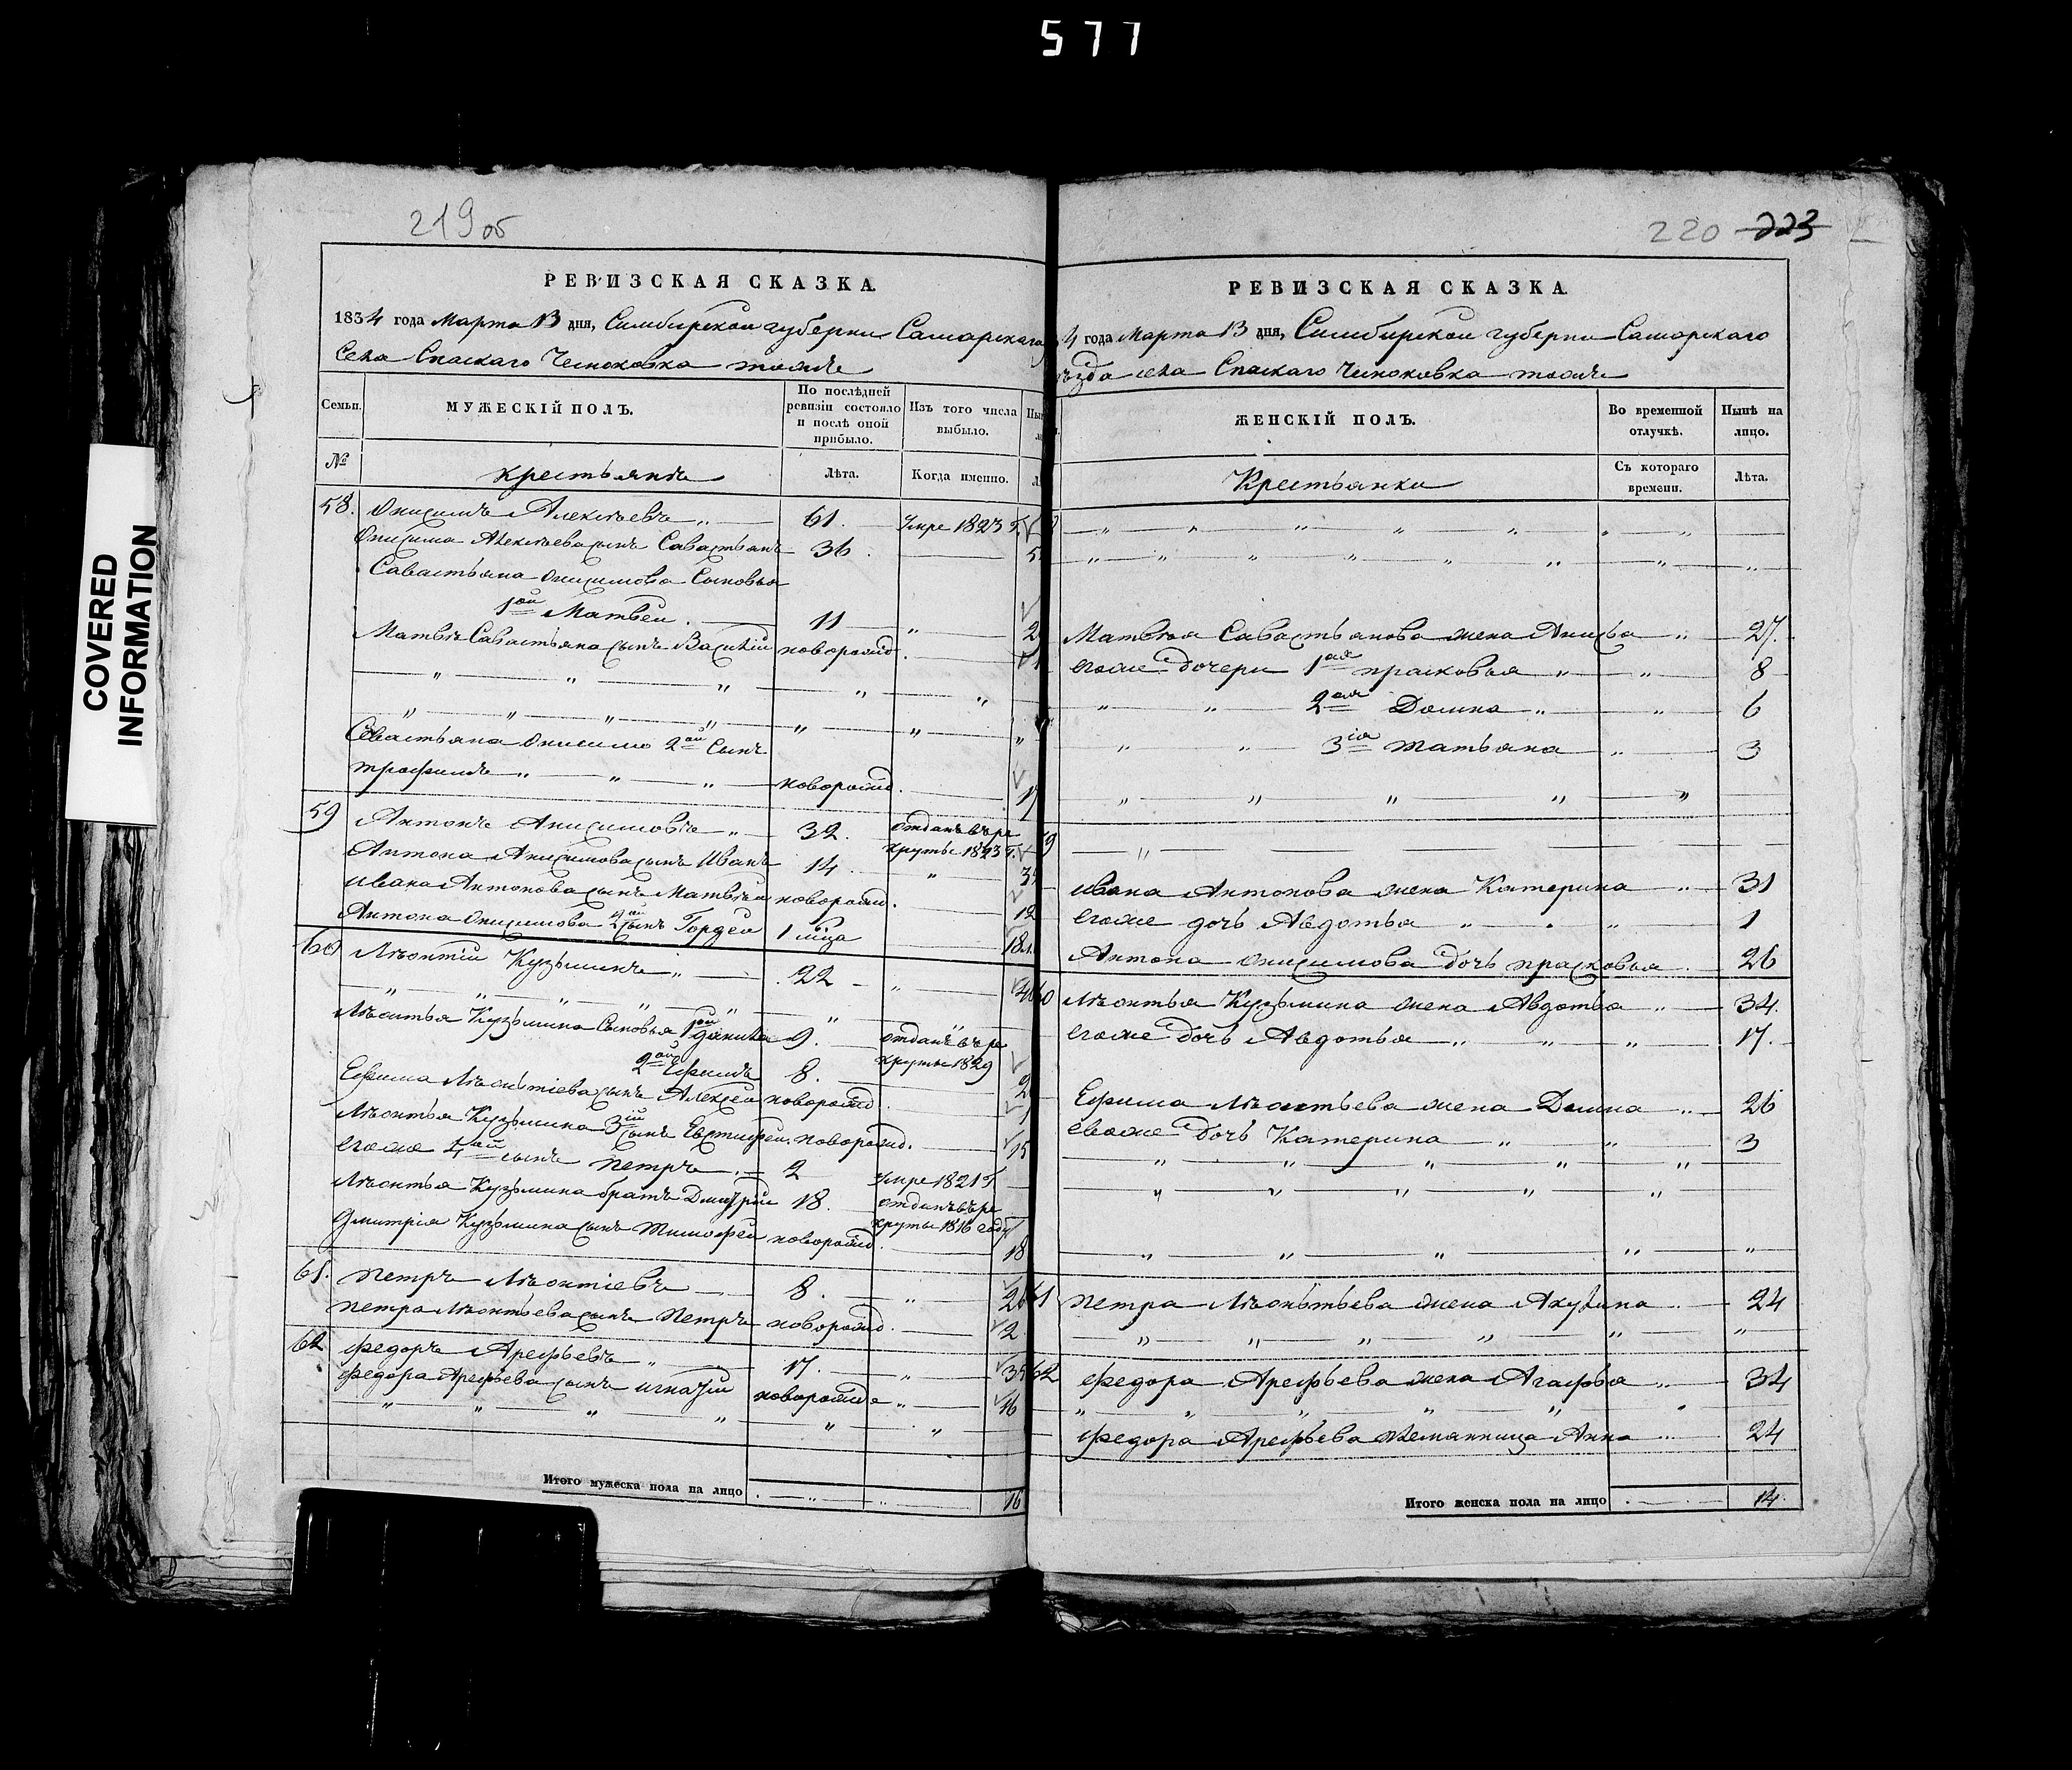 577
219об
РЕВИЗСКАЯ СКАЗКА.
1834 года Марта 13 дня, Симбирской губерни Самарскаго
Села Спаскаго Чесноковка тожъ
Семьи.
МУЖЕСКІЙ ПОЛЪ.
По послѣдней ревизіи состояло и послѣ оной прибыло.
Изъ того числа выбыло.
№
крестьянъ
Лѣта.
Когда именно.
58. Онисимъ Алексѣевъ 61. Умре 1823 г.
Онисима Алексѣева сынъ Савастьянъ 36
Савастьяна Онисимова Сыновья
1ой Матвеи 11
Матвѣя Савастьяна сынъ Василіи новорожд.
Савастьяна Онисимо 2ой Сынъ
трофимъ новорожд. 17
59 Антонъ Анисимовъ 32. отданъ въ ре
круты 1823 г.
Антона Анисимова сынъ Иванъ 14
Ивана Антонова сынъ Матвѣи новорожд. 12
Антона Онисимова 2ой сынъ Гордеи 1 мца 18
60 Лѣонтіи Кузьминъ 22 40
Лѣонтья Кузьмина Сыновья 1ой данила 9. отданъ въ ре
круты 1829
2ой Ефимъ 8.
Ефима Лѣонтіева сынъ Алексеи новорожд.
Лѣонтья Кузьмина 3ій сынъ Евстифеи новорожд. 15
егоже 4ой сынъ петръ 2 умре 1821 г
Лѣонтья Кузьмина братъ Дмитріи 18. отданъ въ ре
круты 1816 году
Дмитрія Кузьмина сынъ тимофеи новорожд. 18
61. петръ Лѣонтіевъ 8. 26
петра Лѣонтьева сынъ Петръ новорожд. 2
62 федоръ Арефьевъ 17. 35
федора Арефьева сынъ игнатіи новорожде 16
Итого мужеска пола на лицо 16
220 223
РЕВИЗСКАЯ СКАЗКА.
4 года Марта 13 дня, Симбирской губерни Самарскаго
ѣзда села Спаскаго Чесноковка тожъ
ЖЕНСКІЙ ПОЛЪ.
Во временной отлучкѣ.
Нынѣ на лицо.
Крестьянки
Съ котораго времени.
Лѣта.
Матвѣя Савастьянова жена Анисья 27.
егоже дочери 1ая прасковья 8
2ая Домна 6
3ія татьяна 3
59
Ивана Антонова жена Катерина 31
егоже дочь Авдотья 1
Антона Онисимова дочь прасковья 26
60 Лѣонтья Кузьмина жена Авдотья 34.
егоже дочь Авдотья 17.
Ефима Лѣонтьева жена Домна 26
евоже дочь Катерина 3
61 петра Лѣоньтьева жена Акулина 24
62 федора Арефьева жена Агафья 34
федора Арефьева племянница Анна 24
Итого женска пола на лицо 14.
COVERED
INFORMATION